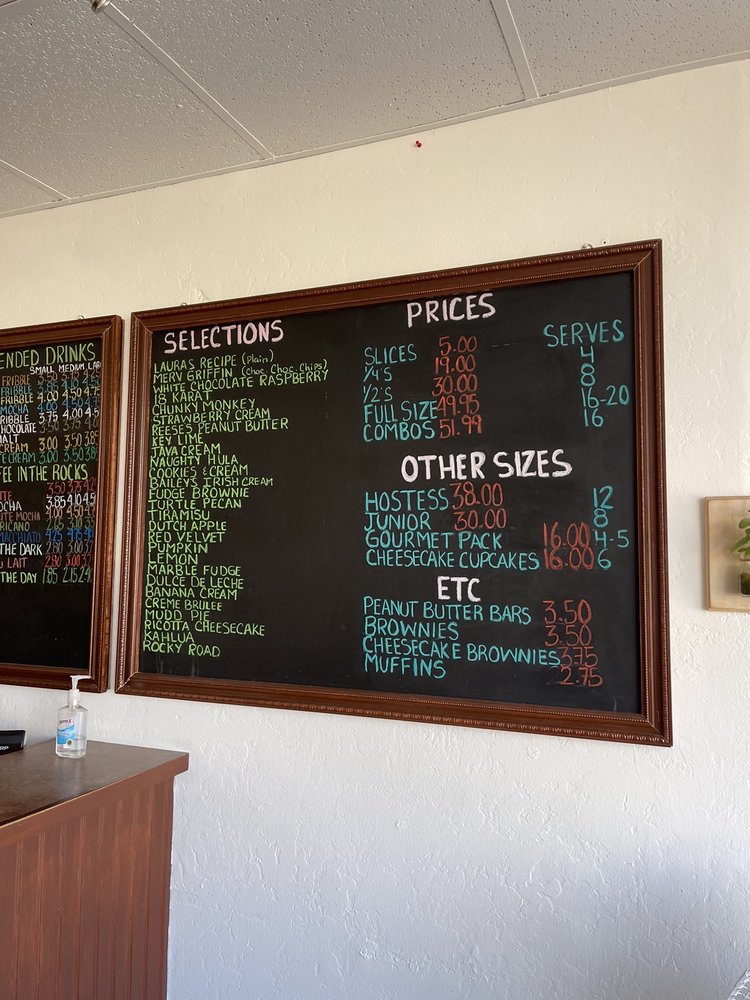 ENDED DRINKS
SMALL MEDIUM LAR
FRIBBLE 3.50
FRIBBLE
FRIBBLE 4.00 4.50
MOCHA 4.00 4.50
RIBBLE 3.75 4.00 4.5
CHOCOLATE
MALT
CREAM 3.00 3.50 3.85
E CREAM 3.00 3.50 3.85
FEE IN THE ROCKS
TTE
OCHA 3.85 4.10 4.5
ITE MOCHA
RICANO
MACCHIATO
THE DARK 2.80
U LAIT 2.80
THE DAY 1.85 2.15 2.40
SELECTIONS
LAURA'S RECIPE (Plain)
MERV GRIFFIN (Choc. Choc. Chips)
WHITE CHOCOLATE RASPBERRY
18 KARAT
CHUNKY MONKEY
STRAWBERRY CREAM
REESES PEANUT BUTTER
KEY LIME
JAVA CREAM
NAUGHTY HULA
COOKIES & CREAM
BAILEY'S IRISH CREAM
FUDGE BROWNIE
TURTLE PECAN
TIRAMISU
DUTCH APPLE
RED VELVET
PUMPKIN
LEMON
MARBLE FUDGE
DULCE DE LECHE
BANANA CREAM
CREME BRULEE
MUDD PIE
RICOTTA CHEESECAKE
KAHLUA
ROCKY ROAD
PRICES
SERVES
SLICES 5.00
1/4'S 19.00 4
1/2'S 30.00 8
FULL SIZE 49.95 16-20
COMBOS 51.99 16
OTHER SIZES
HOSTESS 38.00 12
JUNIOR 30.00 8
GOURMET PACK 16.00 4-5
CHEESECAKE CUPCAKES 16.00 6
ETC
PEANUT BUTTER BARS 3.50
BROWNIES 3.50
CHEESECAKE BROWNIES 3.75
MUFFINS 2.75